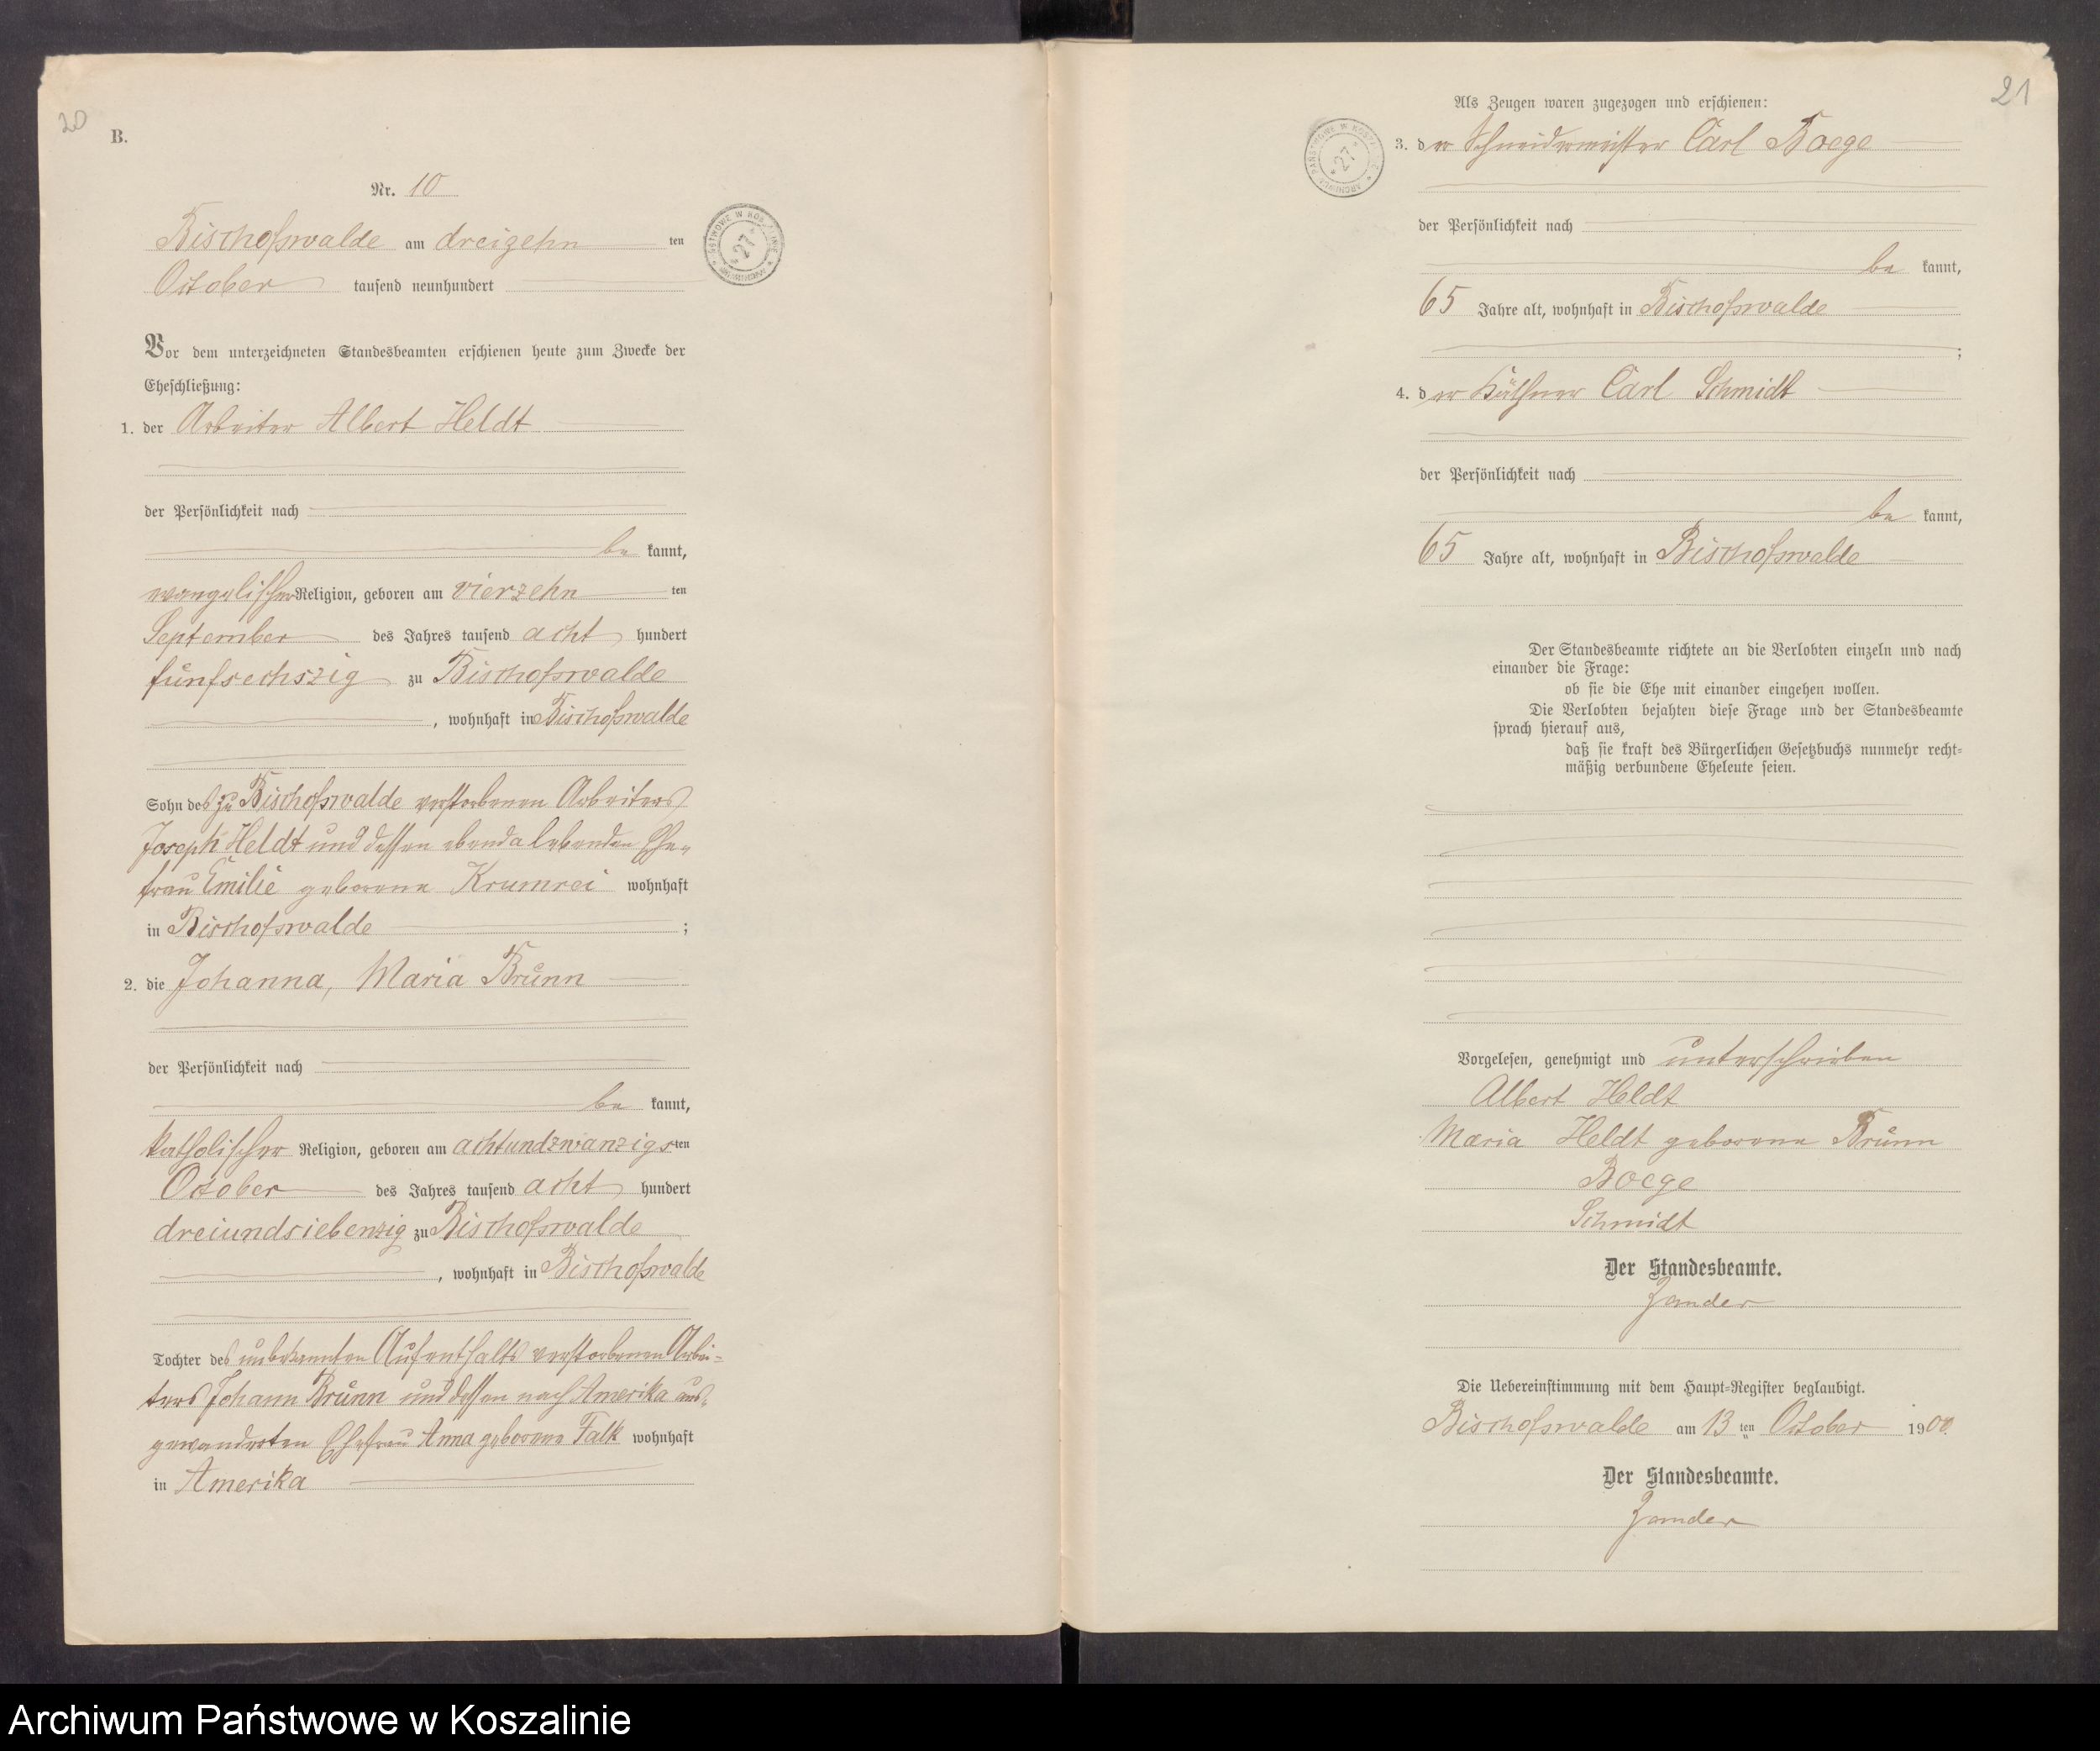 20
B.
Nr. 10
Bischofswalde am dreizehn ten
October tausend neunhundert
Vor dem unterzeichneten Standesbeamten erschienen heute zum Zwecke der
Eheschließung:
1. der Arbeiter Albert Heldt
der Persönlichkeit nach
be kannt,
evangelischer Religion, geboren am vierzehn ten
September des Jahres tausend acht hundert
fünfsechszig zu Bischofswalde
, wohnhaft in Bischofswalde
Sohn des zu Bischofswalde verstorbenen Arbeiters
Joseph Heldt und dessen ebenda lebenden Ehe-
frau Emilie geborene Krumrei wohnhaft
in Bischofswalde ;
2. die Johanna, Maria Brünn
der Persönlichkeit nach
be kannt,
katholischer Religion, geboren am achtundzwanzigs ten
October des Jahres tausend acht hundert
dreiundsiebenzig zu Bischofswalde
, wohnhaft in Bischofswalde
Tochter des unbekannten Aufenthalts verstorbenen Arbei-
ters Johann Brünn und dessen nach Amerika aus-
gewanderten Ehefrau Anna geborene Falk wohnhaft
in Amerika
21
Als Zeugen waren zugezogen und erschienen:
3. der Schneidermeister Carl Boege
der Persönlichkeit nach
be kannt,
65 Jahre alt, wohnhaft in Bischofswalde
;
4. der Käthner Carl Schmidt
der Persönlichkeit nach
be kannt,
65 Jahre alt, wohnhaft in Bischofswalde
Der Standesbeamte richtete an die Verlobten einzeln und nach
einander die Frage:
ob sie die Ehe mit einander eingehen wollen.
Die Verlobten bejahten diese Frage und der Standesbeamte
sprach hierauf aus,
daß sie kraft des Bürgerlichen Gesetzbuchs nunmehr recht-
mäßig verbundene Eheleute seien.
Vorgelesen, genehmigt und unterschrieben
Albert Heldt
Maria Heldt geborene Brünn
Boege
Schmidt
Der Standesbeamte.
Zander
Die Uebereinstimmung mit dem Haupt-Register beglaubigt.
Bischofswalde am 13 ten October 1900.
Der Standesbeamte.
Zander
Archiwum Państwowe w Koszalinie